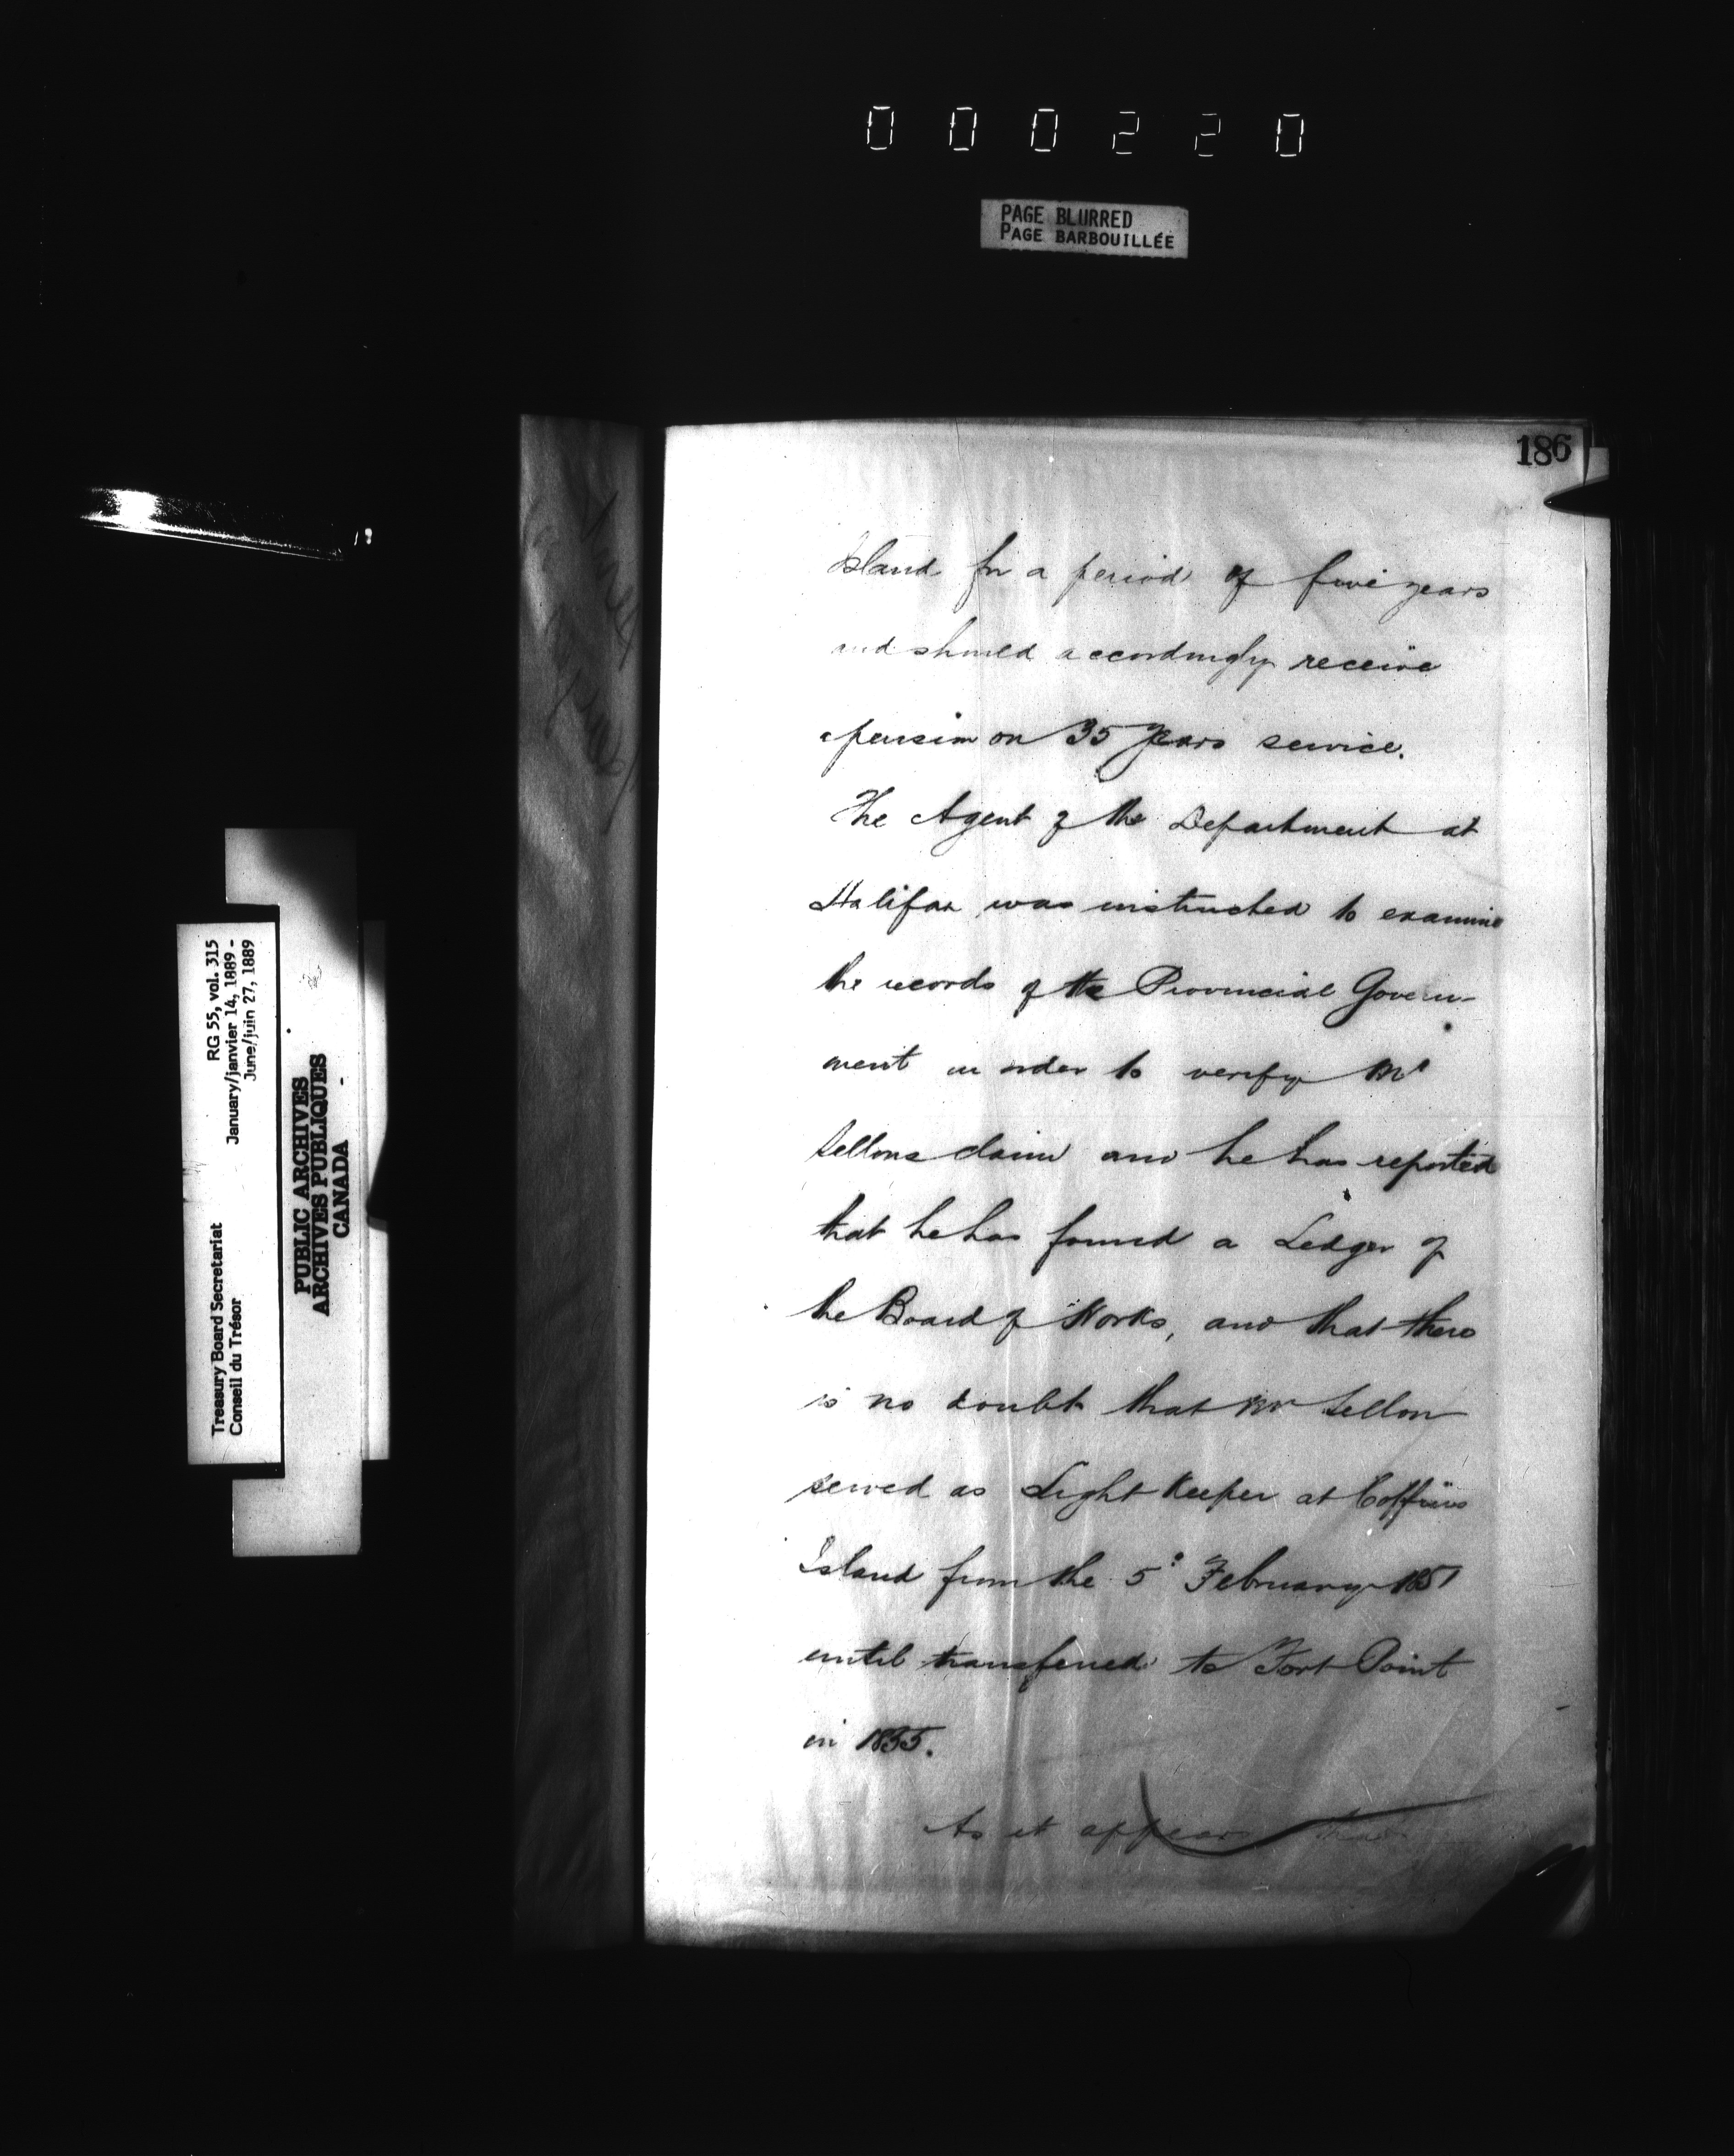 000220
PAGE BLURRED
PAGE BARBOUILLÉE
186
Island for a period of five years
and should accordingly receive
a pension on 35 years service.
The Agent of the Department at
Halifax was instructed to examine
the records of the Provincial Govern-
ment in order to verify Mr
Sellons claim and he has reported
that he has found a Ledger of
the Board of Works, and that there
is no doubt that Mr Sellon
served as Light Keeper at Coffins
Island from the 5th February 1851
until transferred to Fort Point
in 1855.
As it appears that
RG 55, vol. 315
January/janvier 14, 1889 -
June/juin 27, 1889
Treasury Board Secretariat
Conseil du Trésor
PUBLIC ARCHIVES
ARCHIVES PUBLIQUES
CANADA